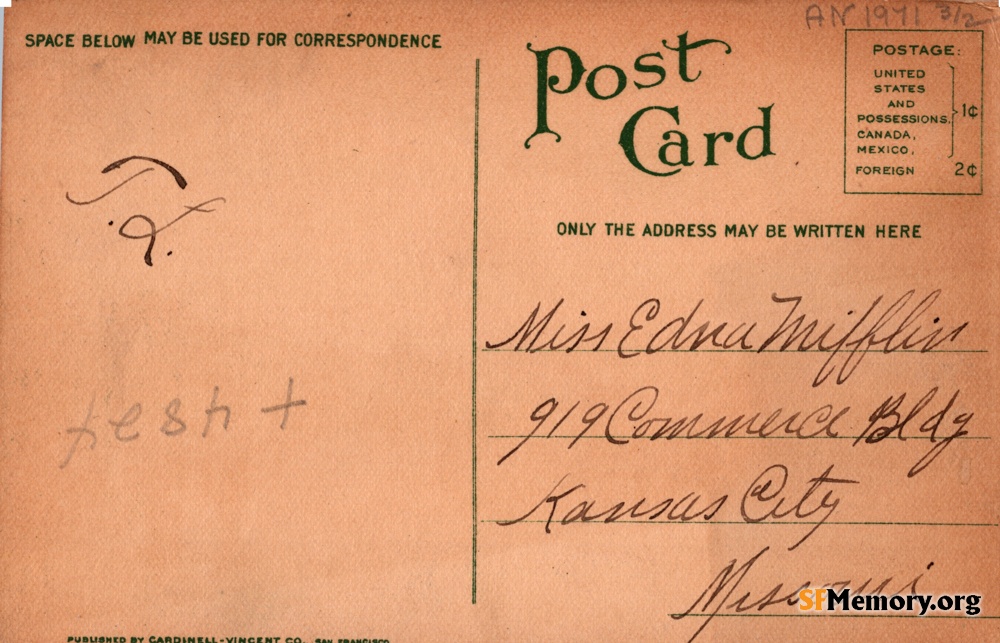 AN 1971 3/2
SPACE BELOW MAY BE USED FOR CORRESPONDENCE
Post
Card
POSTAGE:
UNITED
STATES
AND
POSSESSIONS,
CANADA,
MEXICO,
1¢
FOREIGN 2¢
ONLY THE ADDRESS MAY BE WRITTEN HERE
Miss Edna Mifflin
919 Commerce Bldg
Kansas City
Missouri
PUBLISHED BY CARDINELL-VINCENT CO. SAN FRANCISCO
SFMemory.org